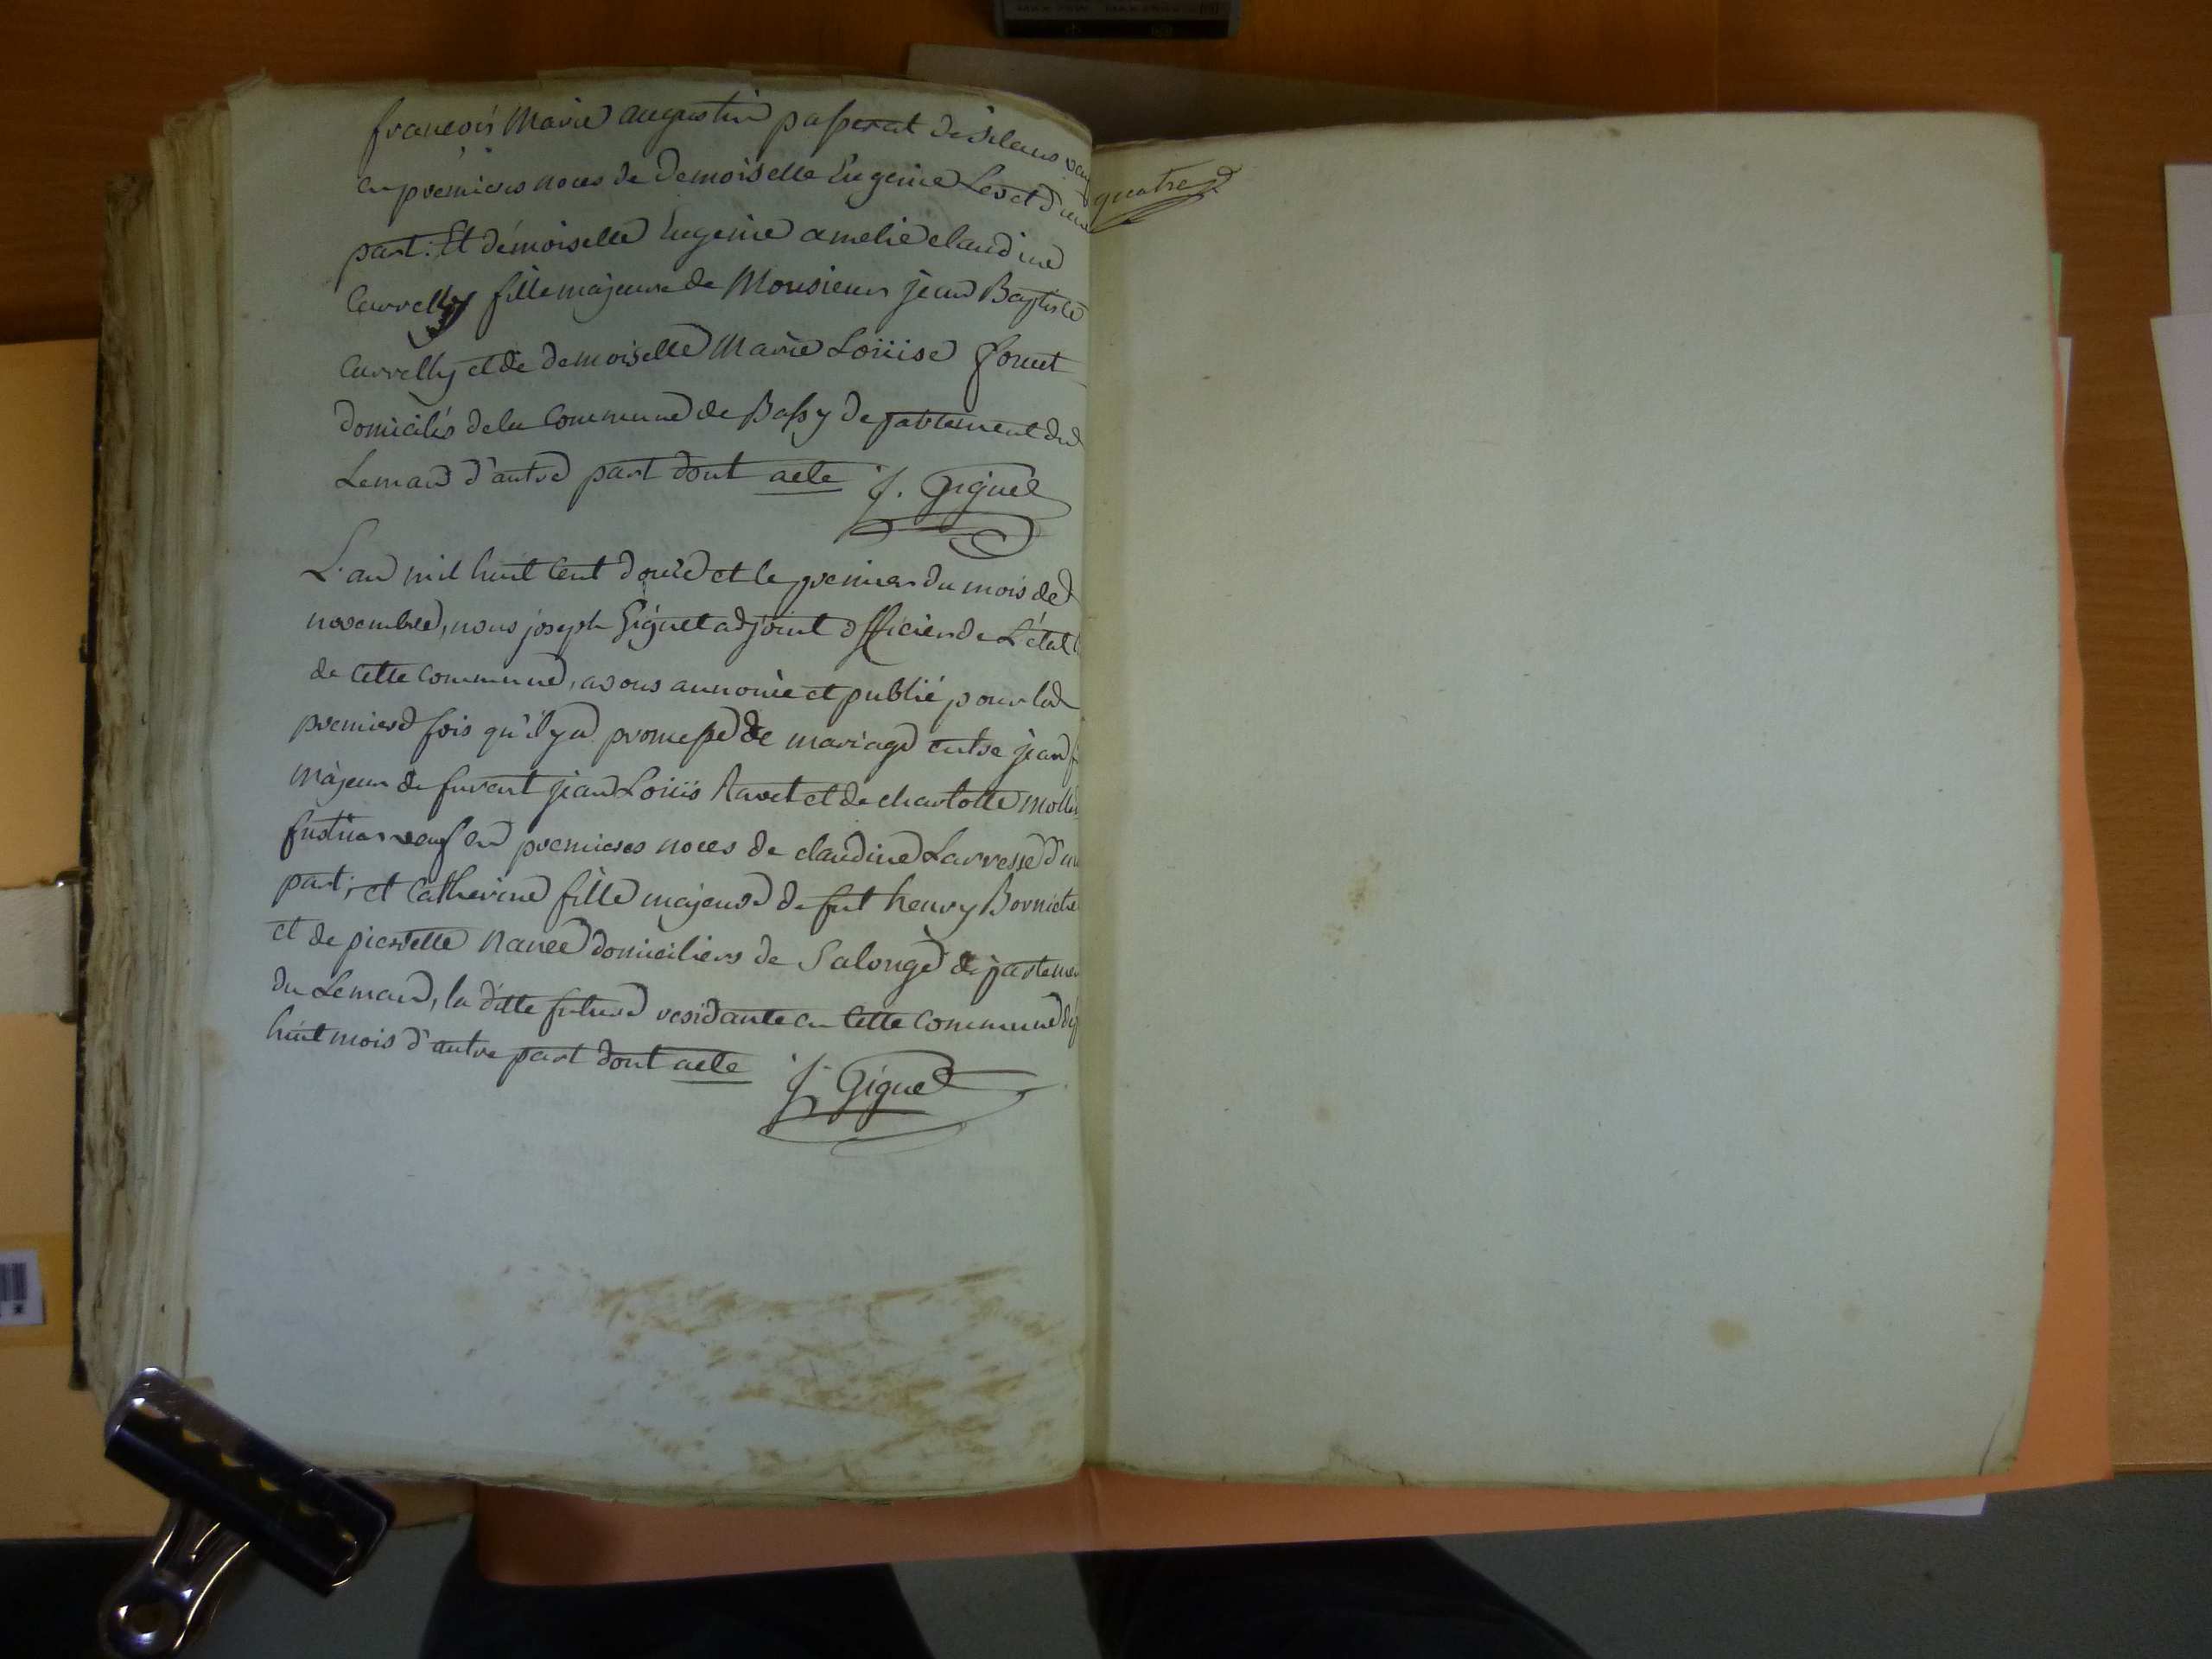 françois Marie augustin passerat de silans
en premieres noces de Demoiselle Eugenie Levet d'une
part. Et demoiselle Eugenie amelie claudine
Curvelly fille majeure de Monsieur jean Baptiste
Curvelly et de demoiselle Marie Loüise
domiciliés de la Commune de Bassy departement du
Leman d'autre part dont acte J. Giguet
L'an mil huit cent douze et le premier du mois de
novembre, nous joseph Giguet adjoint officier de L'état
de cette commune, avons annoncé et publié pour la
premiere fois qu'il y a promesse de mariage entre jean
majeur de jean Loüis Ravet et de charlotte
veuf en premieres noces de claudine Larresse
part, et Catherine fille majeure de fut henry
et de pierrette Nanee domiciliers de Salonge departeme
du Leman, la ditte future residante en cette commune
huit mois d'autre part dont acte J. Giguet
quatre